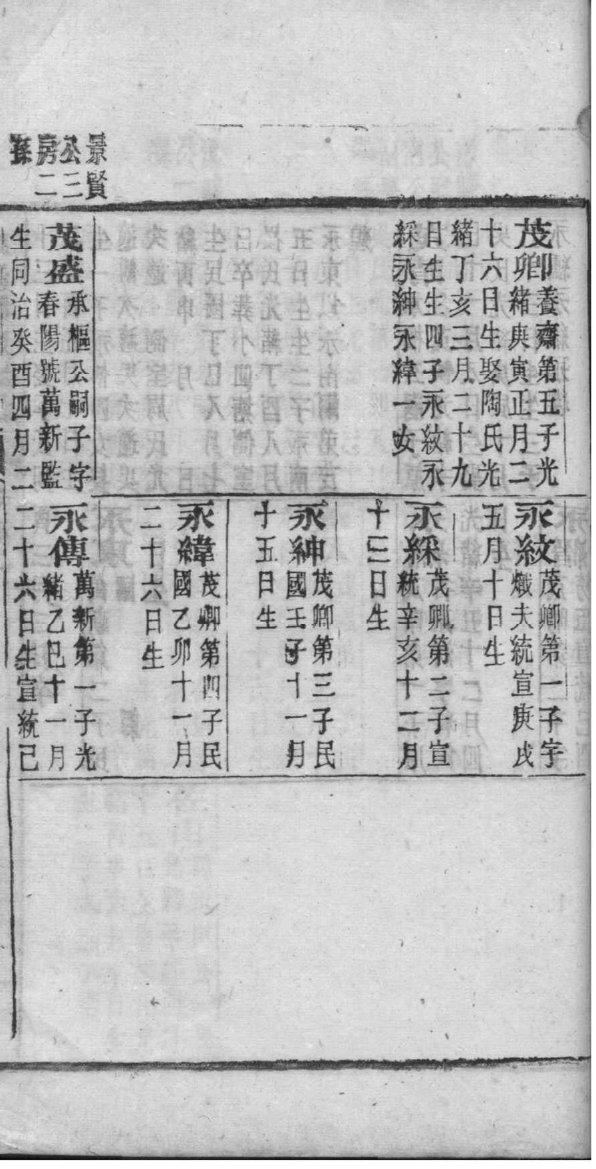 景賢
公三
房二
孫
茂卿養齋第五子光
緒庚寅正月二
十六日生娶陶氏光
緒丁亥三月二十九
日生生四子永紋永
綵永紳永緯一女
茂盛承樞公嗣子字
春陽號萬新監
生同治癸酉四月二
永紋茂卿第一子字
熾夫統宣庚戌
五月十日生
永綵茂卿第二子宣
統辛亥十二月
十三日生
永紳茂卿第三子民
國壬子十一月
十五日生
永緯茂卿第四子民
國乙卯十一月
二十六日生
永傳萬新第一子光
緒乙巳十一月
二十六日生宣統己